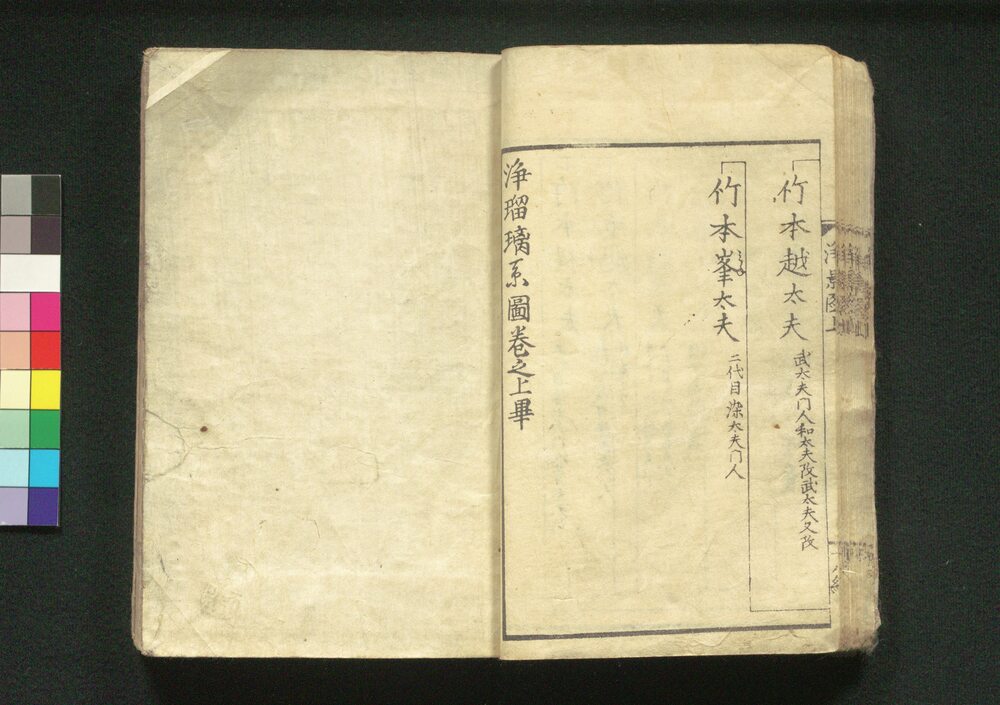 竹本越太夫
武太夫门人和太夫改武太夫又改
竹本峯太夫
みね
二代目染太夫门人
浄瑠璃系圖卷之上畢